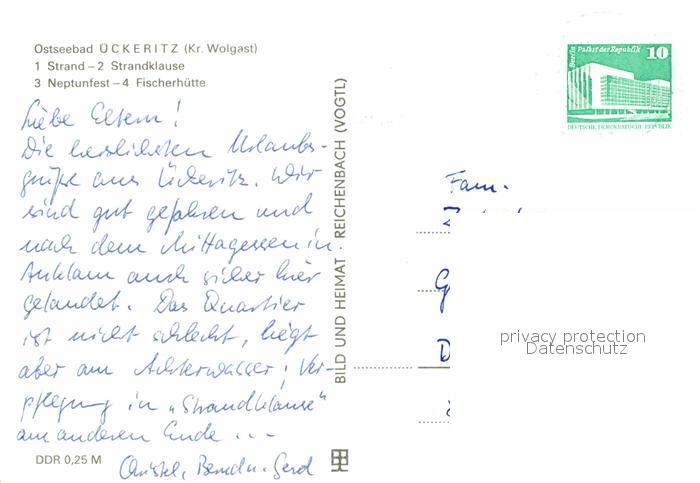 Ostseebad ÜCKERITZ (Kr. Wolgast)
1 Strand – 2 Strandklause
3 Neptunfest – 4 Fischerhütte
Liebe Eltern!
Die herzlichsten Urlaubs-
grüße aus Ückeritz. Wir
sind gut gefahren und
nach dem Mittagessen in
Anklam auch sicher hier
gelandet. Das Quartier
ist nicht schlecht, liegt
aber am Achterwasser, Ver-
pflegung in „Strandklause"
am anderen Ende ...
Christel, Bernd u. Gerd
DDR 0,25 M
BILD UND HEIMAT REICHENBACH (VOGTL)
Berlin Palast der Republik 10
DEUTSCHE DEMOKRATISCHE REPUBLIK
Fam.
G
D
privacy protection
Datenschutz